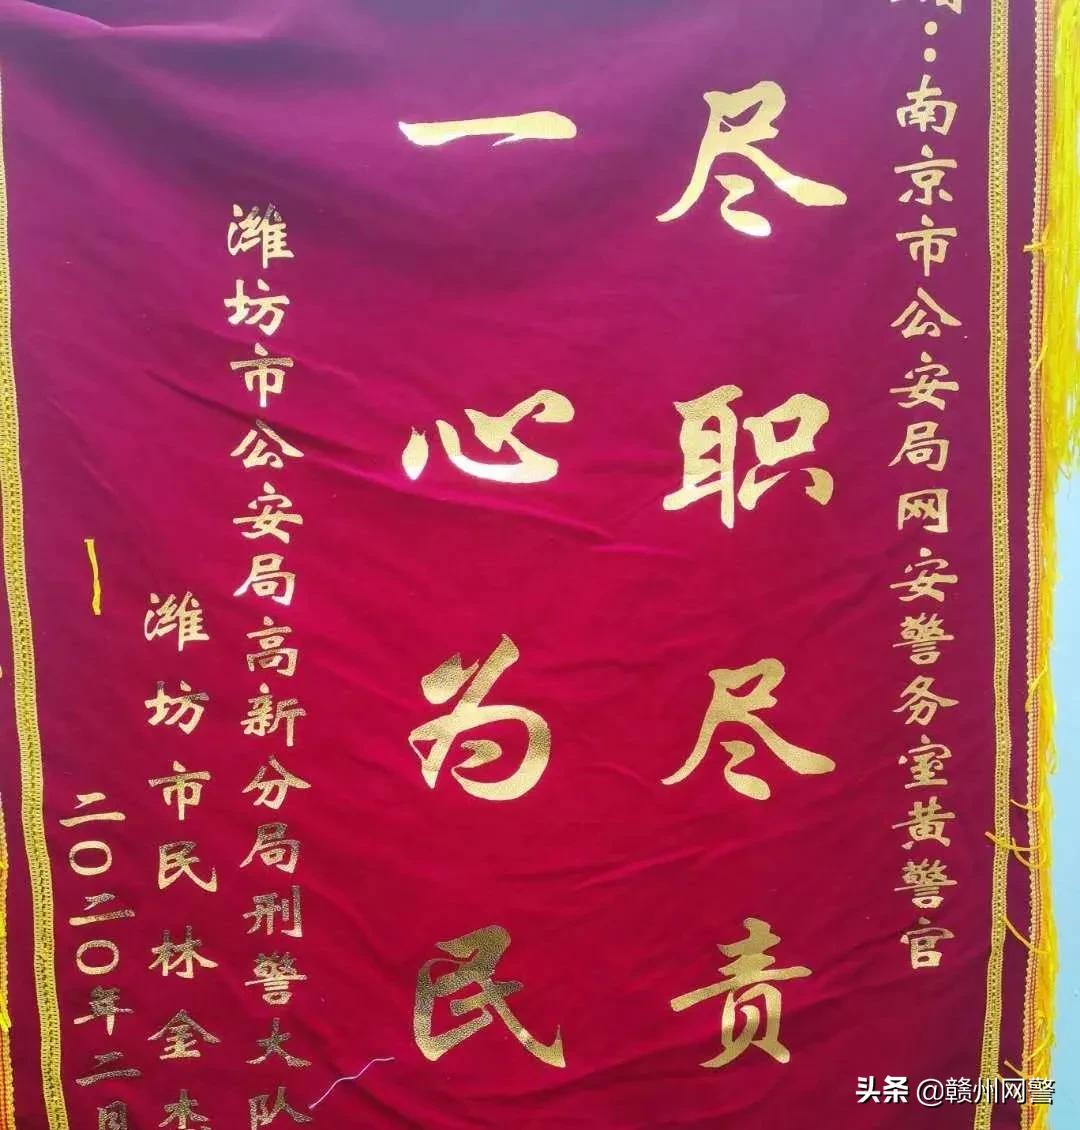 ：南京市公安局网安警务室黄警官
尽职尽责
一心为民
潍坊市公安局高新分局刑警大队
潍坊市民林金杰
二〇二〇年二月
头条 @赣州网警